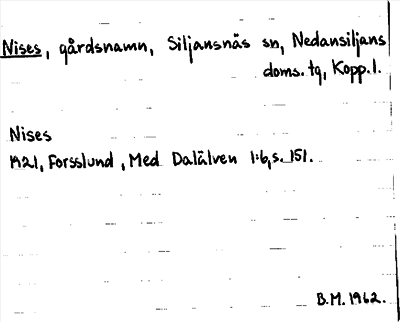 Nises, gårdsnamn, Siljansnäs sn, Nedansiljans
doms. tg, Kopp. l.
Nises
1921, Forsslund, Med Dalälven 1:6, s. 151.
B.M. 1962.